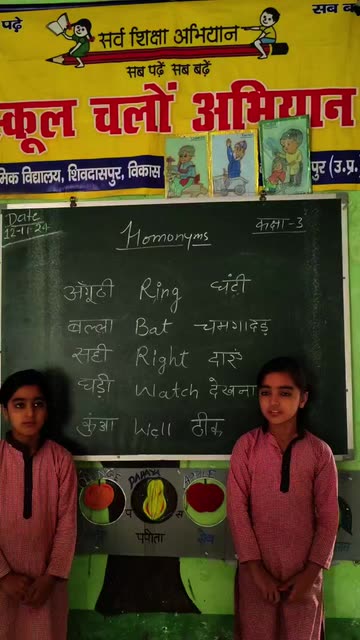 पढ़े
सब
सर्व शिक्षा अभियान
सब पढ़ें सब बढ़ें
स्कूल चलों अभियान
मिक विद्यालय, शिवदासपुर, विकास
पुर (उ.प्र.)
Date
12-11-24
Homonyms
कक्षा-3
अँगूठी Ring घंटी
बल्ला Bat चमगादड़
सही Right दाएं
घड़ी Watch देखना
कुंआ Well ठीक
PAPAYA
APPLE
पपीता
सेब